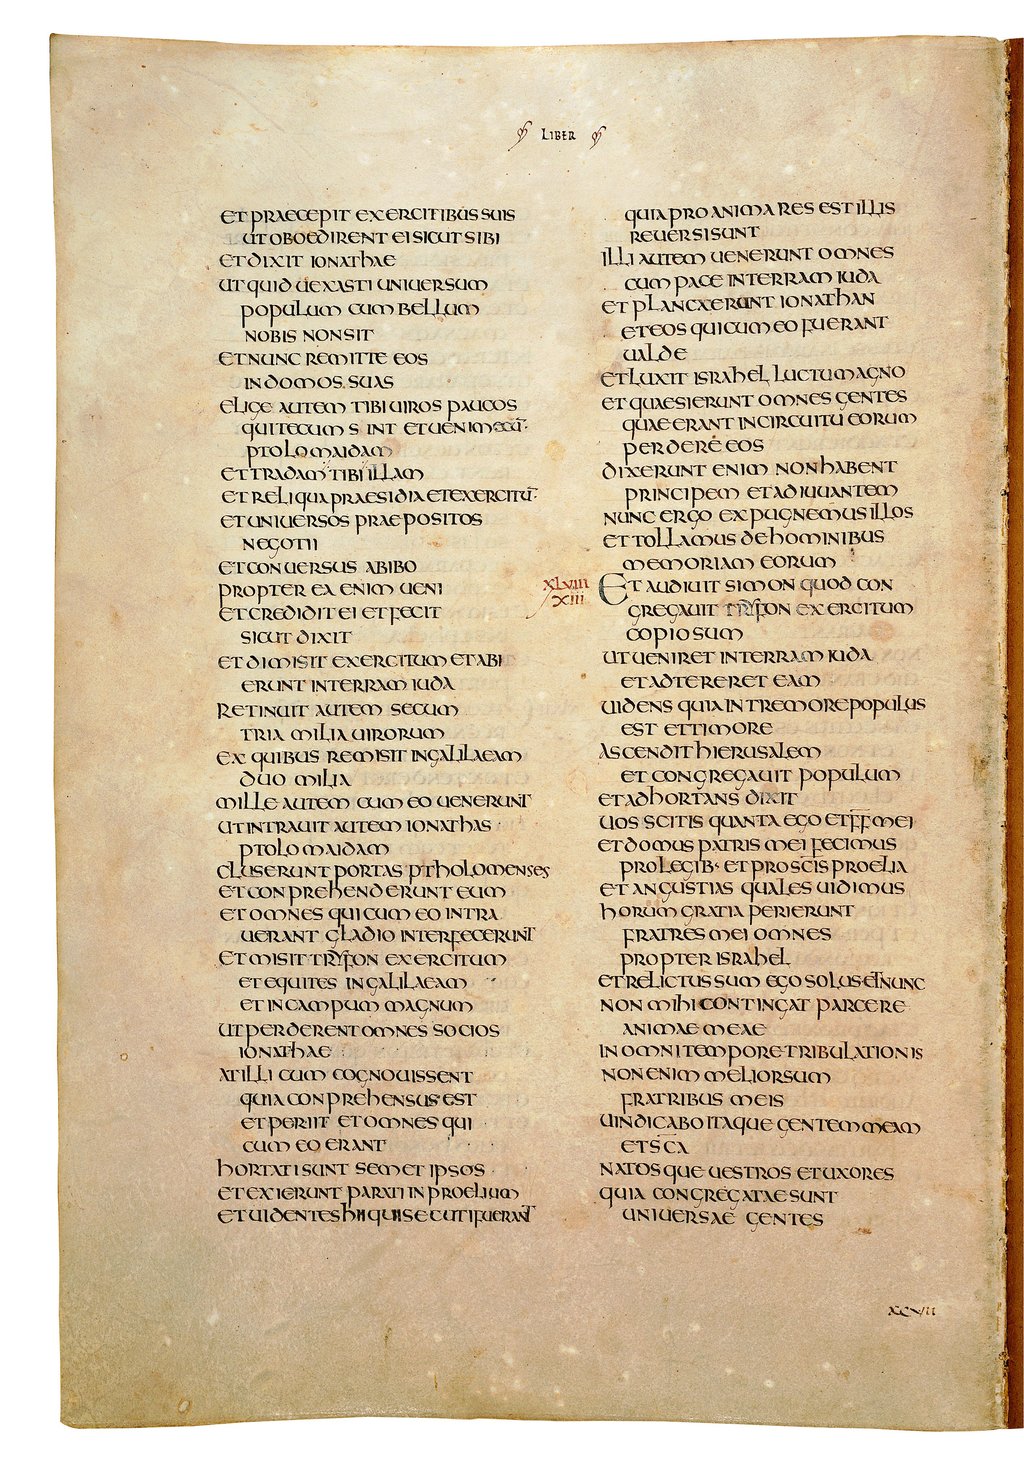 LIBER
ET PRAECEPIT EXERCITIBUS SUIS
UT OBOEDIRENT EI SICUT SIBI
ET DIXIT IONATHAE
UT QUID UEXASTI UNIUERSUM
POPULUM CUM BELLUM
NOBIS NON SIT
ET NUNC REMITTE EOS
IN DOMOS SUAS
ELIGE AUTEM TIBI UIROS PAUCOS
QUI TECUM SINT ET UENI MECŪ
PTOLOMAIDAM
ET TRADAM TIBI ILLAM
ET RELIQUA PRAESIDIA ET EXERCITŪ
ET UNIUERSOS PRAEPOSITOS
NEGOTII
ET CONUERSUS ABIBO
PROPTER EA ENIM UENI
ET CREDIDIT EI ET FECIT
SICUT DIXIT
ET DIMISIT EXERCITUM ET ABI
ERUNT IN TERRAM IUDA
RETINUIT AUTEM SECUM
TRIA MILIA UIRORUM
EX QUIBUS REMISIT IN GALILAEAM
DUO MILIA
MILLE AUTEM CUM EO UENERUNT
UT INTRAUIT AUTEM IONATHAS
PTOLOMAIDAM
CLUSERUNT PORTAS PTHOLOMENSES
ET CONPREHENDERUNT EUM
ET OMNES QUI CUM EO INTRA
UERANT GLADIO INTERFECERUNT
ET MISIT TRYFON EXERCITUM
ET EQUITES IN GALILAEAM
ET IN CAMPUM MAGNUM
UT PERDERENT OMNES SOCIOS
IONATHAE
AT ILLI CUM COGNOUISSENT
QUIA CONPREHENSUS EST
ET PERIIT ET OMNES QUI
CUM EO ERANT
HORTATI SUNT SEMET IPSOS
ET EXIERUNT PARATI IN PROELIUM
ET UIDENTES HII QUI INSECUTI FUERANT
QUIA PRO ANIMA RES EST ILLIS
REUERSI SUNT
ILLI AUTEM UENERUNT OMNES
CUM PACE IN TERRAM IUDA
ET PLANCXERUNT IONATHAN
ET EOS QUI CUM EO FUERANT
UALDE
ET LUXIT ISRAHEL LUCTU MAGNO
ET QUAESIERUNT OMNES GENTES
QUAE ERANT IN CIRCUITU EORUM
PERDERE EOS
DIXERUNT ENIM NON HABENT
PRINCIPEM ET ADIUUANTEM
NUNC ERGO EXPUGNEMUS ILLOS
ET TOLLAMUS DE HOMINIBUS
MEMORIAM EORUM
XLVIII
XIII
ET AUDIUIT SIMON QUOD CON
GREGAUIT TRYFON EXERCITUM
COPIOSUM
UT UENIRET IN TERRAM IUDA
ET ADTERERET EAM
UIDENS QUIA IN TREMORE POPULUS
EST ET TIMORE
ASCENDIT HIERUSALEM
ET CONGREGAUIT POPULUM
ET ADHORTANS DIXIT
UOS SCITIS QUANTA EGO ET FF MEI
ET DOMUS PATRIS MEI FECIMUS
PRO LEGIB· ET PRO SCIS PROELIA
ET ANGUSTIAS QUALES UIDIMUS
HORUM GRATIA PERIERUNT
FRATRES MEI OMNES
PROPTER ISRAHEL
ET RELICTUS SUM EGO SOLUS ET NUNC
NON MIHI CONTINGAT PARCERE
ANIMAE MEAE
IN OMNI TEMPORE TRIBULATIONIS
NON ENIM MELIOR SUM
FRATRIBUS MEIS
UINDICABO ITAQUE GENTEM MEAM
ET SCA
NATOSQUE UESTROS ET UXORES
QUIA CONGREGATAE SUNT
UNIUERSAE GENTES
XCVII